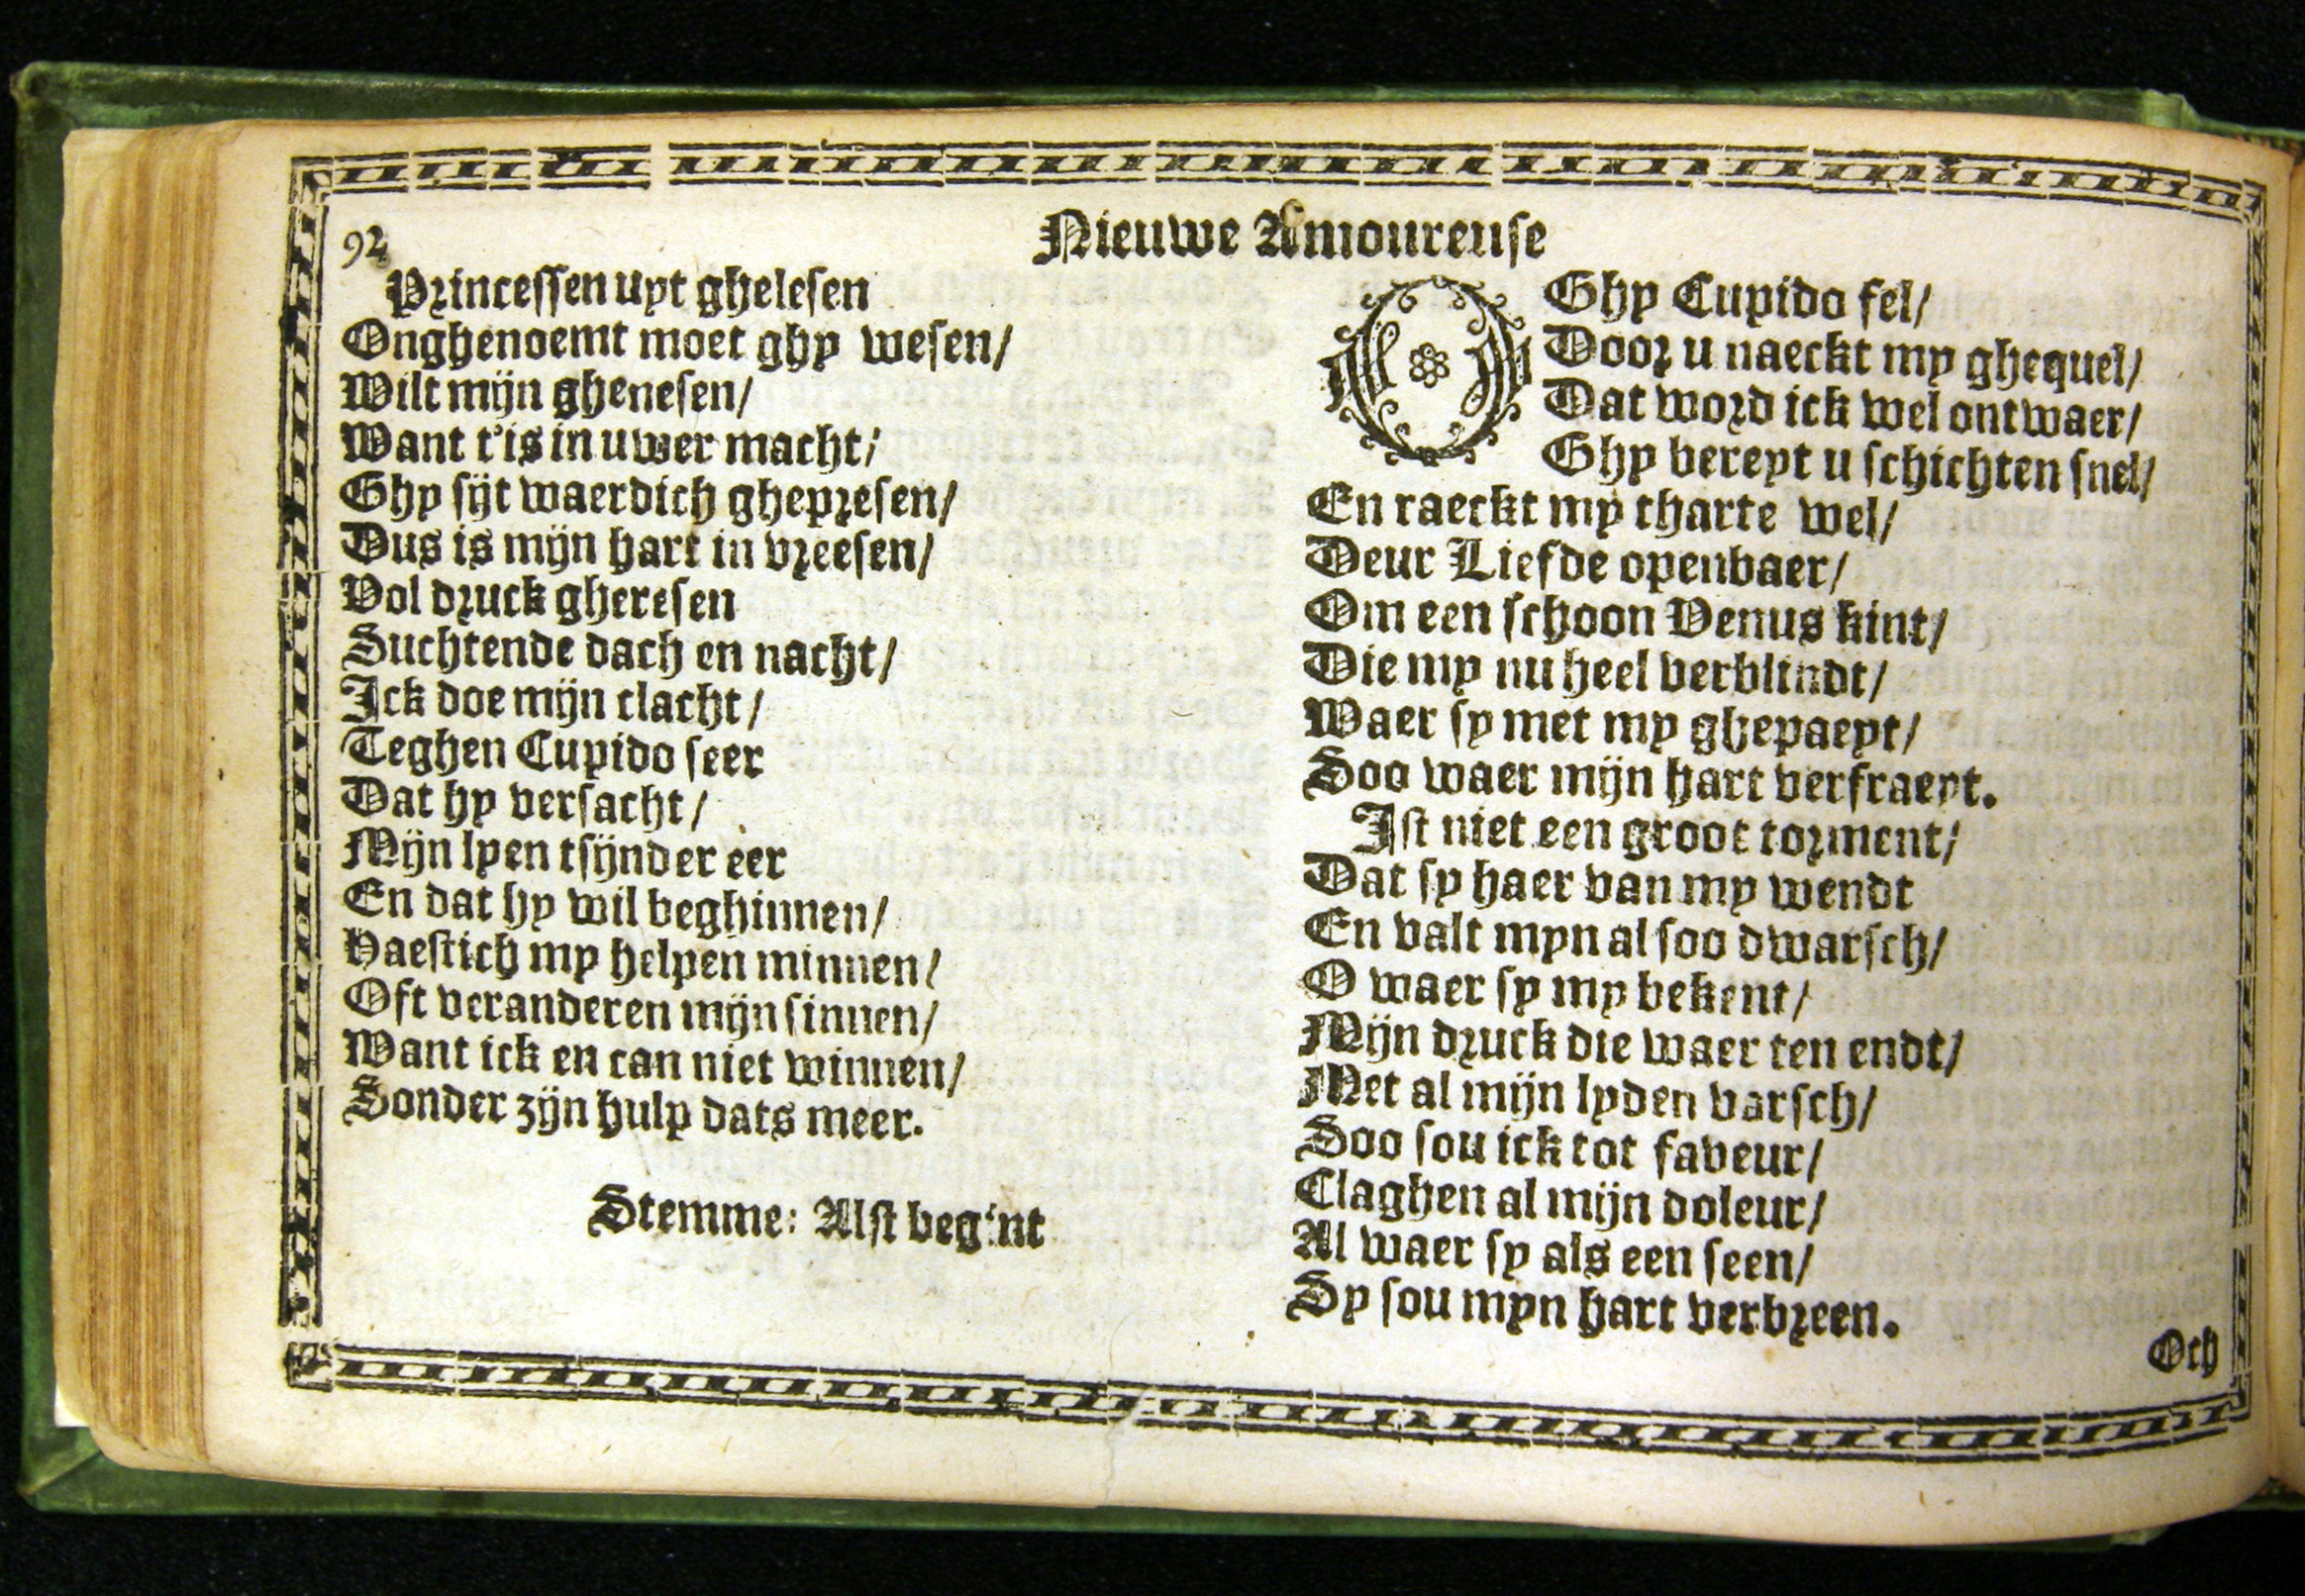 92
Nieuwe Amoureuse
Princessen uyt ghelesen
Onghenoemt moet ghy wesen/
Wilt mijn ghenesen/
Want t'is in uwer macht/
Ghy sijt waerdich ghepresen/
Dus is mijn hart in vreesen/
Vol druck gheresen
Suchtende dach en nacht/
Ick doe mijn clacht/
Teghen Cupido seer
Dat hy versacht/
Mijn lyen tsijnder eer
En dat hy wil beghinnen/
Haestich my helpen minnen/
Oft veranderen mijn sinnen/
Want ick en can niet winnen/
Sonder zijn hulp dats meer.
Stemme: Alst begint
O Ghy Cupido fel/
Door u naeckt my ghequel/
Dat word ick wel ontwaer/
Ghy bereyt u schichten snel/
En raeckt my tharte wel/
Deur Liefde openbaer/
Om een schoon Venus kint/
Die my nu heel verblindt/
Waer sy met my ghepaeyt/
Soo waer mijn hart verfraeyt.
Ist niet een groot torment/
Dat sy haer van my wendt
En valt myn al soo dwarsch/
O waer sy my bekent/
Mijn druck die waer ten endt/
Met al mijn lyden varsch/
Soo sou ick tot faveur/
Claghen al mijn doleur/
Al waer sy als een seen/
Sy sou myn hart verbreen.
Och